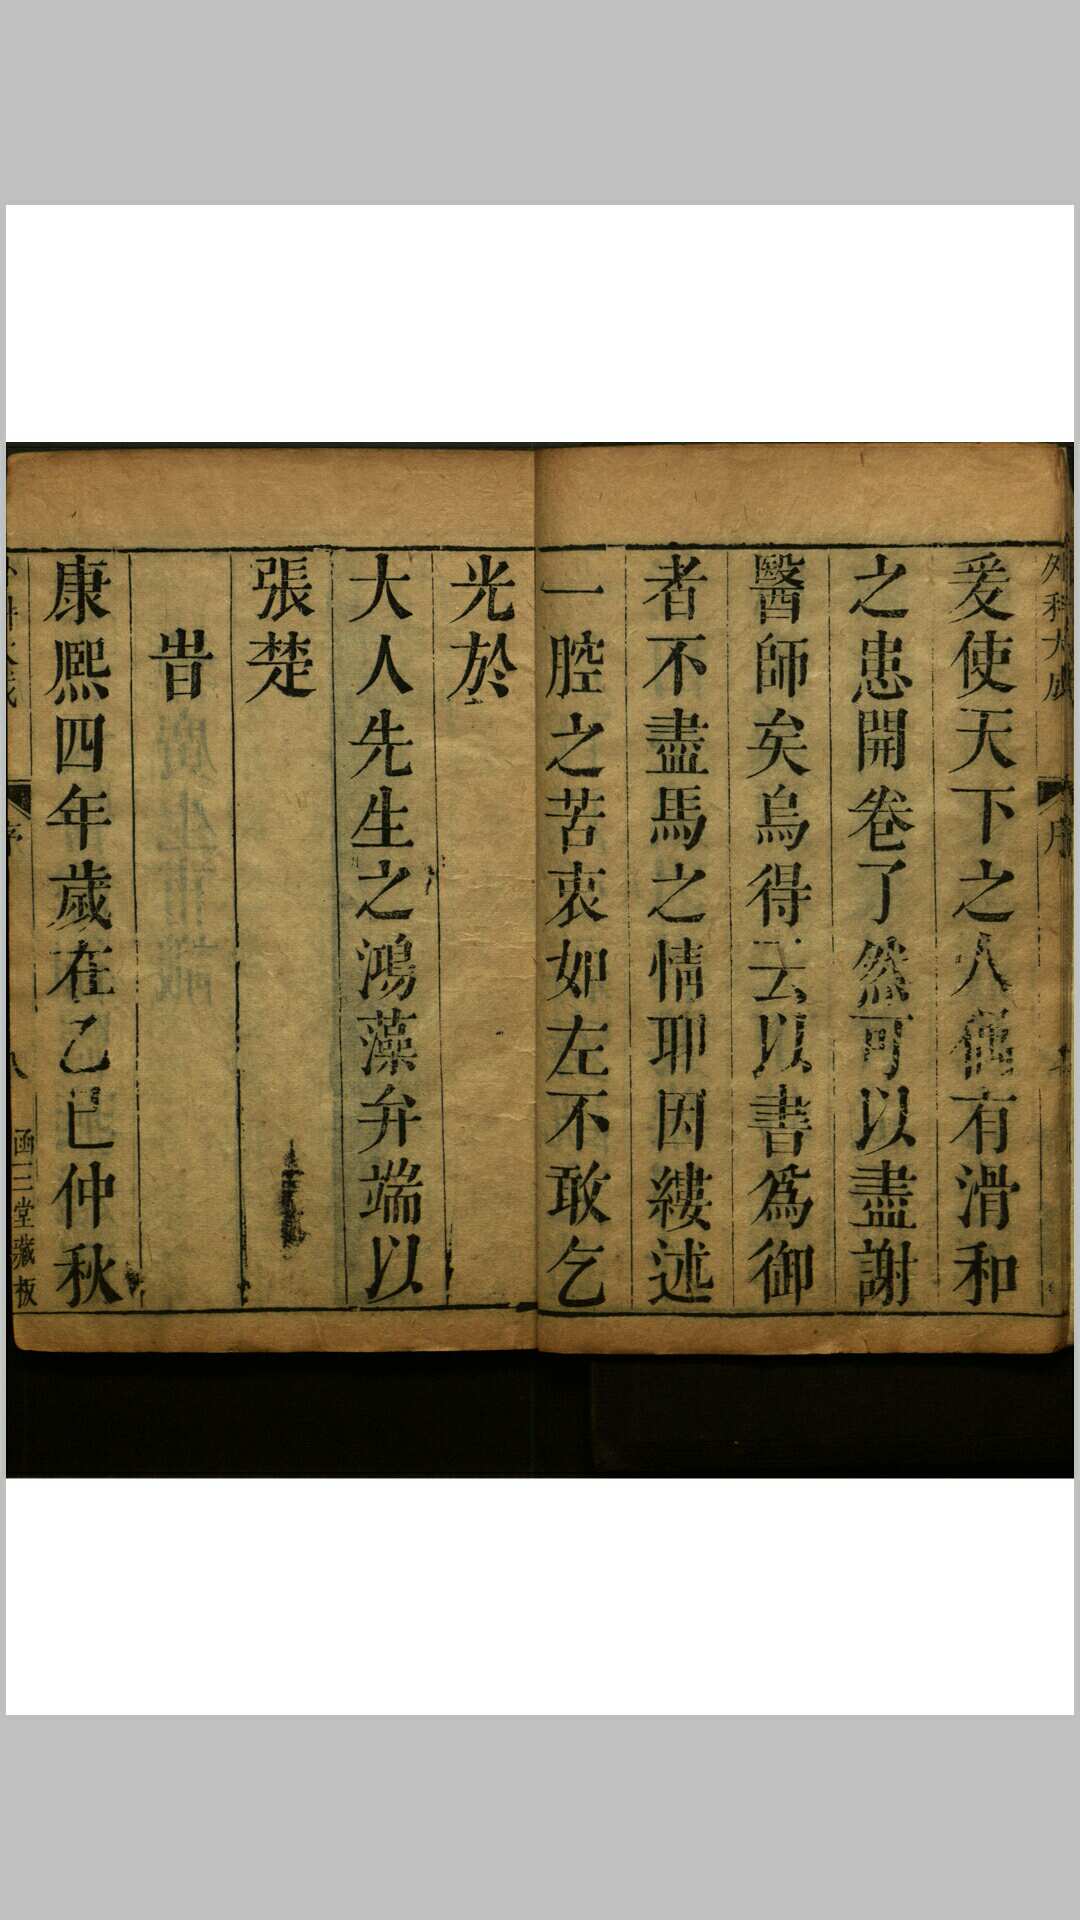 外科大成
序
爰使天下之人偶有滑和
之患開卷了然可以盡謝
醫師矣烏得云以書為御
者不盡馬之情耶因縷述
一腔之苦衷如左不敢乞
光於
大人先生之鴻藻弁端以
張楚
旹
康熙四年歲在乙巳仲秋
序
八
函三堂藏板